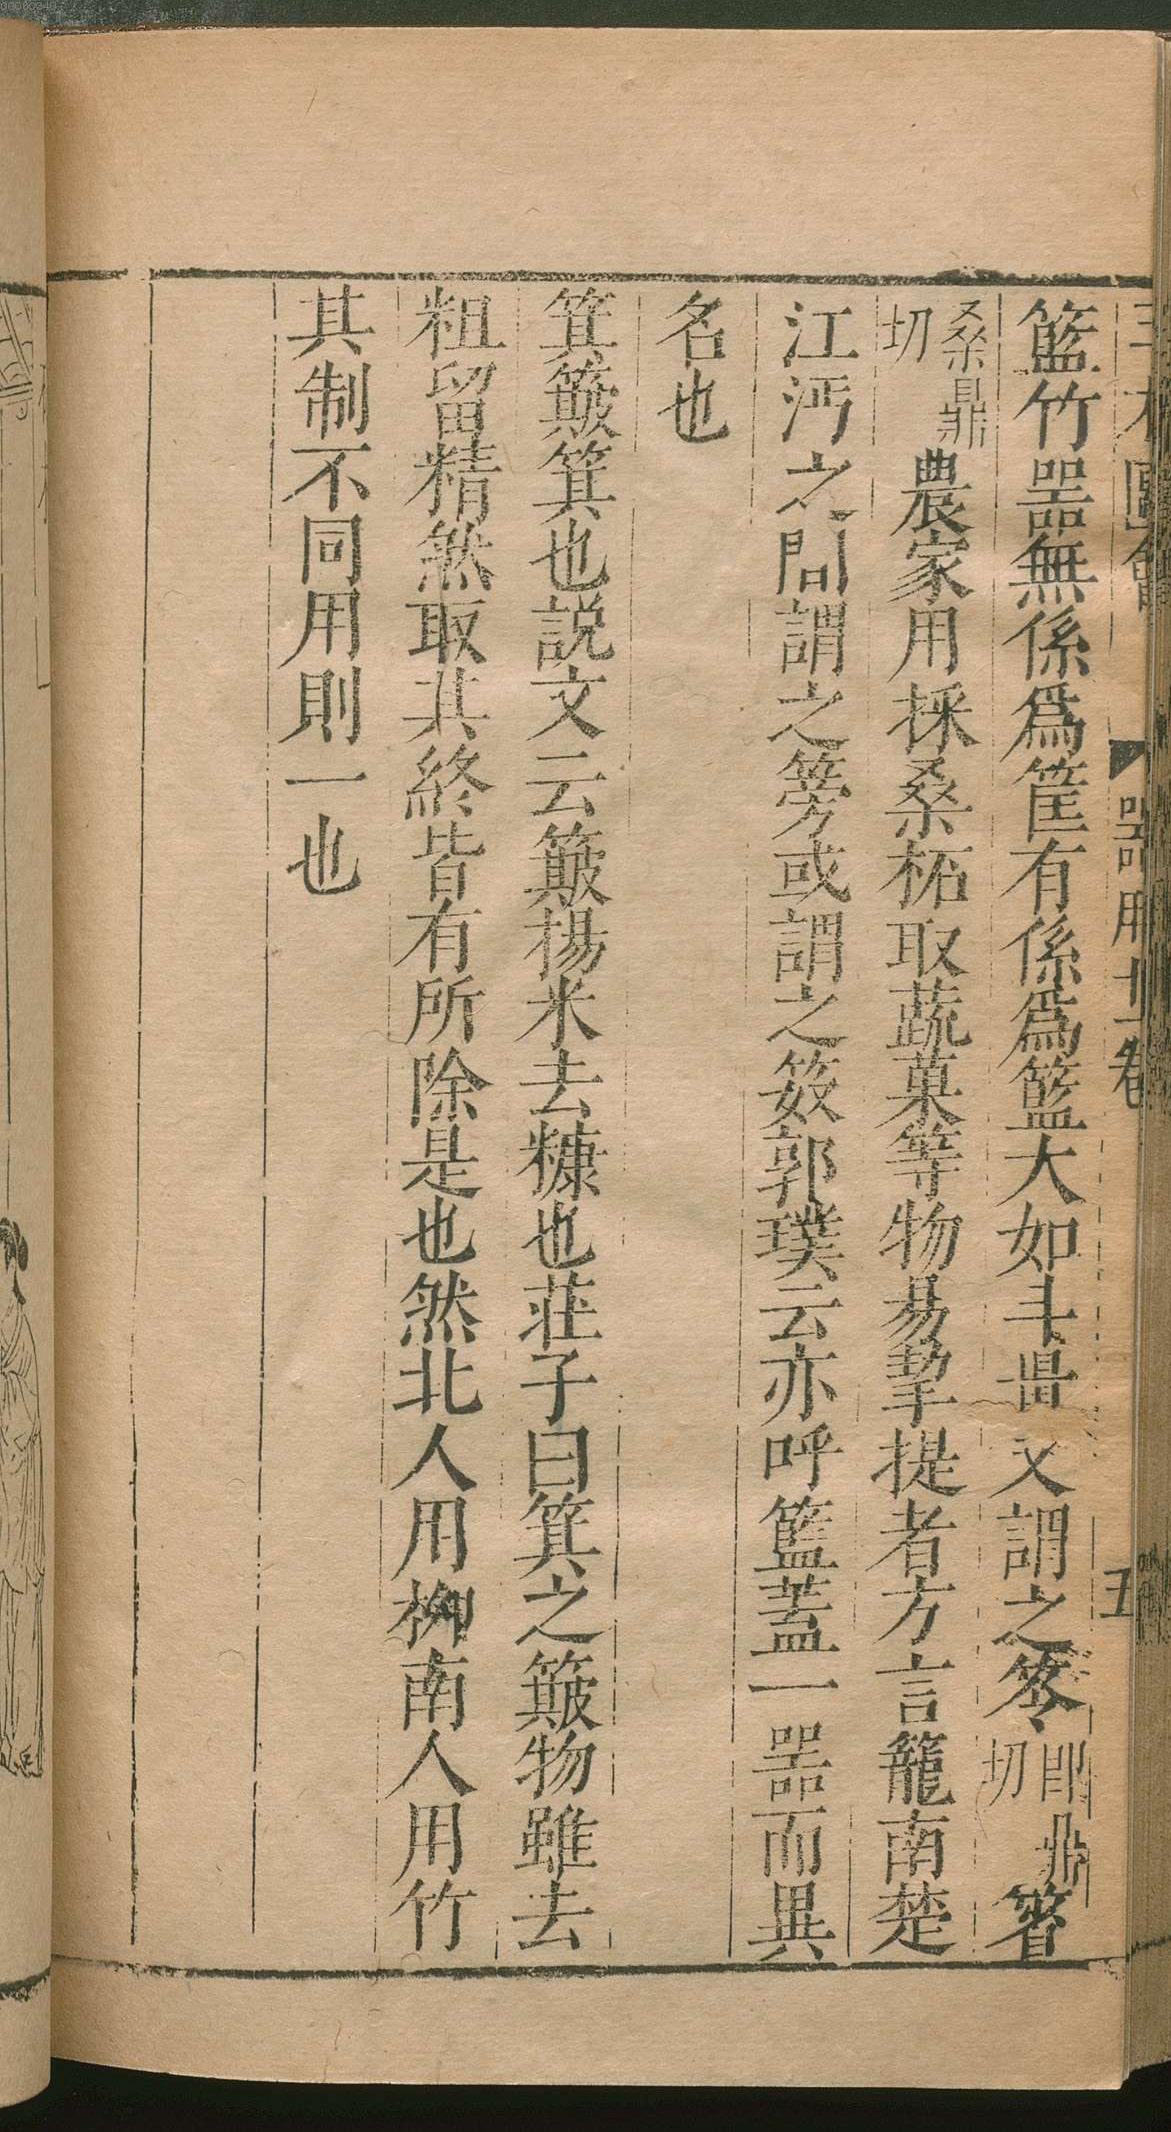 三才圖會 器用十一卷 五
籃竹器無係爲筐有係爲籃大如斗量又謂之笭郎鼎切箵
桑鼎切農家用採桑柘取蔬菓等物易挈提者方言籠南楚
江沔之間謂之篣或謂之笯郭璞云亦呼籃蓋一器而異
名也
箕簸箕也説文云簸揚米去糠也莊子曰箕之簸物雖去
粗留精然取其終皆有所除是也然北人用柳南人用竹
其制不同用則一也